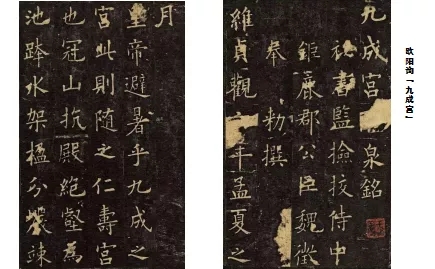 欧阳询「九成宫」
九成宮泉銘
祕書監撿挍侍中
鉅鹿郡公臣魏徵
奉勑撰
維貞觀年孟夏之
月
皇帝避暑乎九成之
宮此則隨之仁壽宮
也冠山抗殿絕壑為
池跨水架楹分巖竦